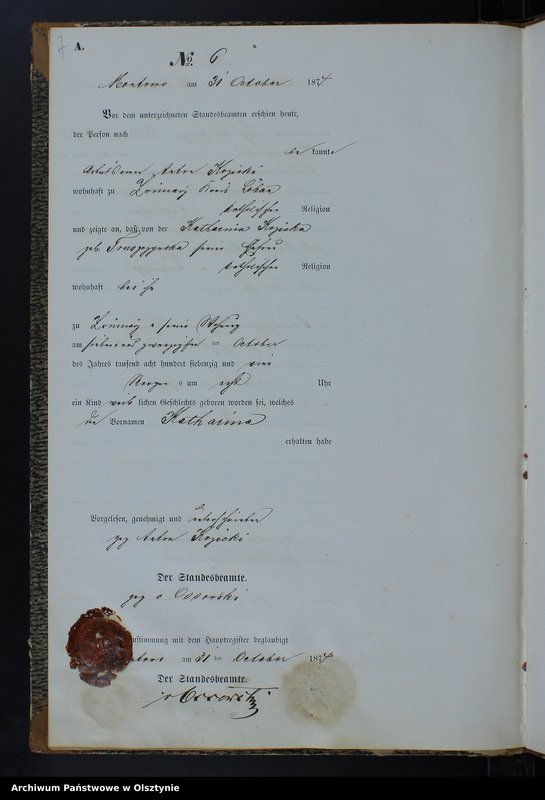 7
A.
No. 6
Montowo am 31 October 1874
Vor dem unterzeichneten Standesbeamten erschien heute,
der Person nach
be kannte
Kozicki
wohnhaft zu Kreis Löbau
katholischer Religion
und zeigte an, daß von der Katharina Kozicka
geb seiner Ehefrau
katholischer Religion
wohnhaft bei ihm
zu in seiner Wohnung
am sieben und zwanzigsten ten October
des Jahres tausend acht hundert siebenzig und vier
Morgens um acht Uhr
ein Kind weib lichen Geschlechts geboren worden sei, welches
den Vornamen Katharina
erhalten habe
Vorgelesen, genehmigt und unterschrieben
gez Kozicki
Der Standesbeamte.
gez v Ossowski
nstimmung mit dem Hauptregister beglaubigt
ontowo am 31 ten October 1874
Der Standesbeamte.
v Ossowski
Archiwum Państwowe w Olsztynie